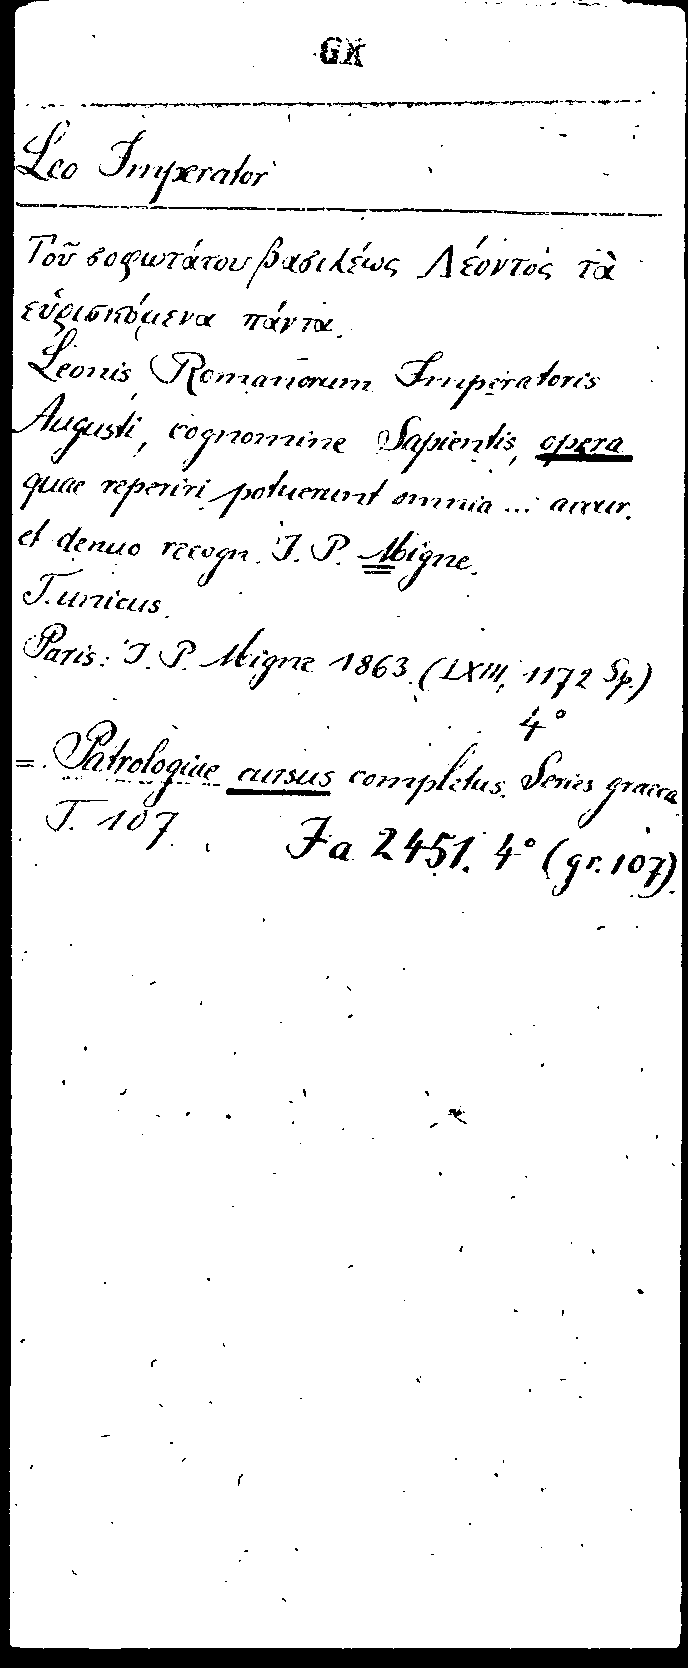 GK
Leo Imperator
Τοῦ σοφωτάτου βασιλέως Λέοντος τὰ
εὑρισκόμενα πάντα.
Leonis, Romanorum Imperatoris
Augusti, cognomine Sapientis, opera
quae reperiri potuerunt omnia ... accur.
et denuo recogn. J. P. Migne.
T. unicus.
Paris: J. P. Migne 1863. (LXIII, 1172 Sp.)
4°
= Patrologiae cursus completus. Series graeca
T. 107.
Ja 2451. 4° (gr. 107)